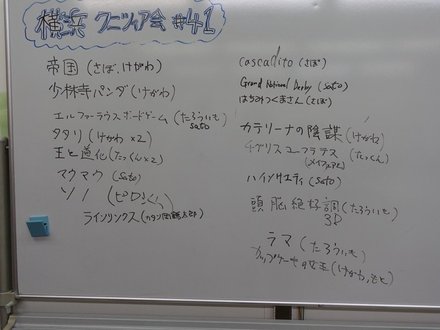 横浜 クニツィア会 #41
帝国 (さぼ、けがわ)
少林寺パンダ (けがわ)
エルファーラウスボードゲーム (たろういも)
sato
タタリ (けがわ×2)
王と道化 (たっくん×2)
マウマウ (sato)
ソノ (ピロンくん)
ラインリンクス
cascadito (さぼ)
Grand National Derby (sato)
はちみつくまさん (さぼ)
カテリーナの陰謀 (けがわ)
チグリスユーフラテス (たっくん)
ハイソサエティ (sato)
頭脳絶好調 (たろういも)
3D
ラマ (たろういも)
カップケーキの女王 (けがわ、